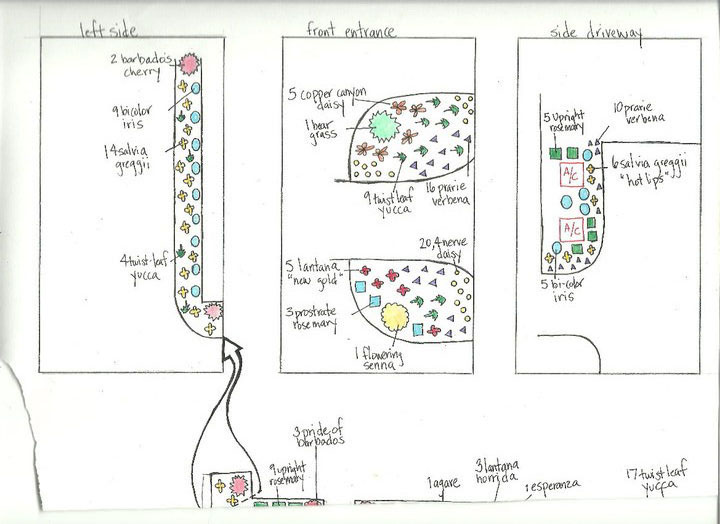 left side
2 barbados
cherry
9 bicolor
iris
14 salvia
greggii
4 twist-leaf
yucca
front entrance
5 copper canyon
daisy
1 bear
grass
9 twist leaf
yucca
16 prarie
verbena
20, 4 nerve
daisy
5 lantana
"new gold"
3 prostrate
rosemary
1 flowering
senna
side driveway
5 upright
rosemary
10 prarie
verbena
6 salvia greggii
"hot lips"
A/C
A/C
5 bi-color
iris
3 pride of
barbados
9 upright
rosemary
1 agare
3 lantana
horrida
1 esperanza
17 twist leaf
yucca